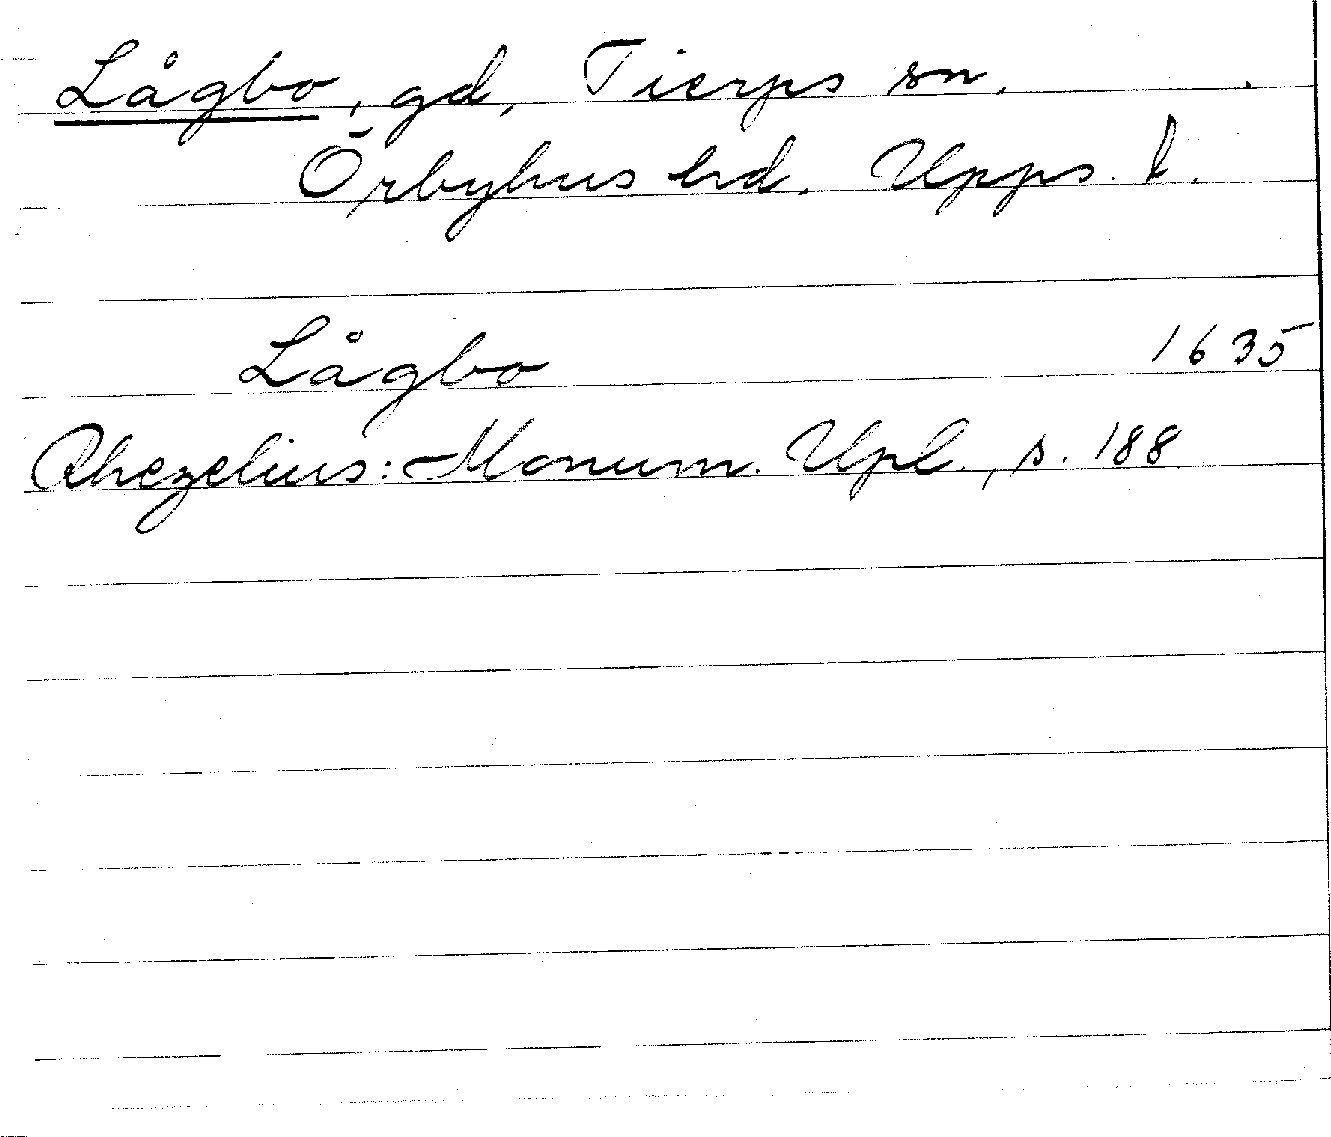 Lågbo, gd, Tierps sn.
Örbyhus hd. Upps. l.
Lågbo 1635
Rhezelius: Monum. Upl., s. 188